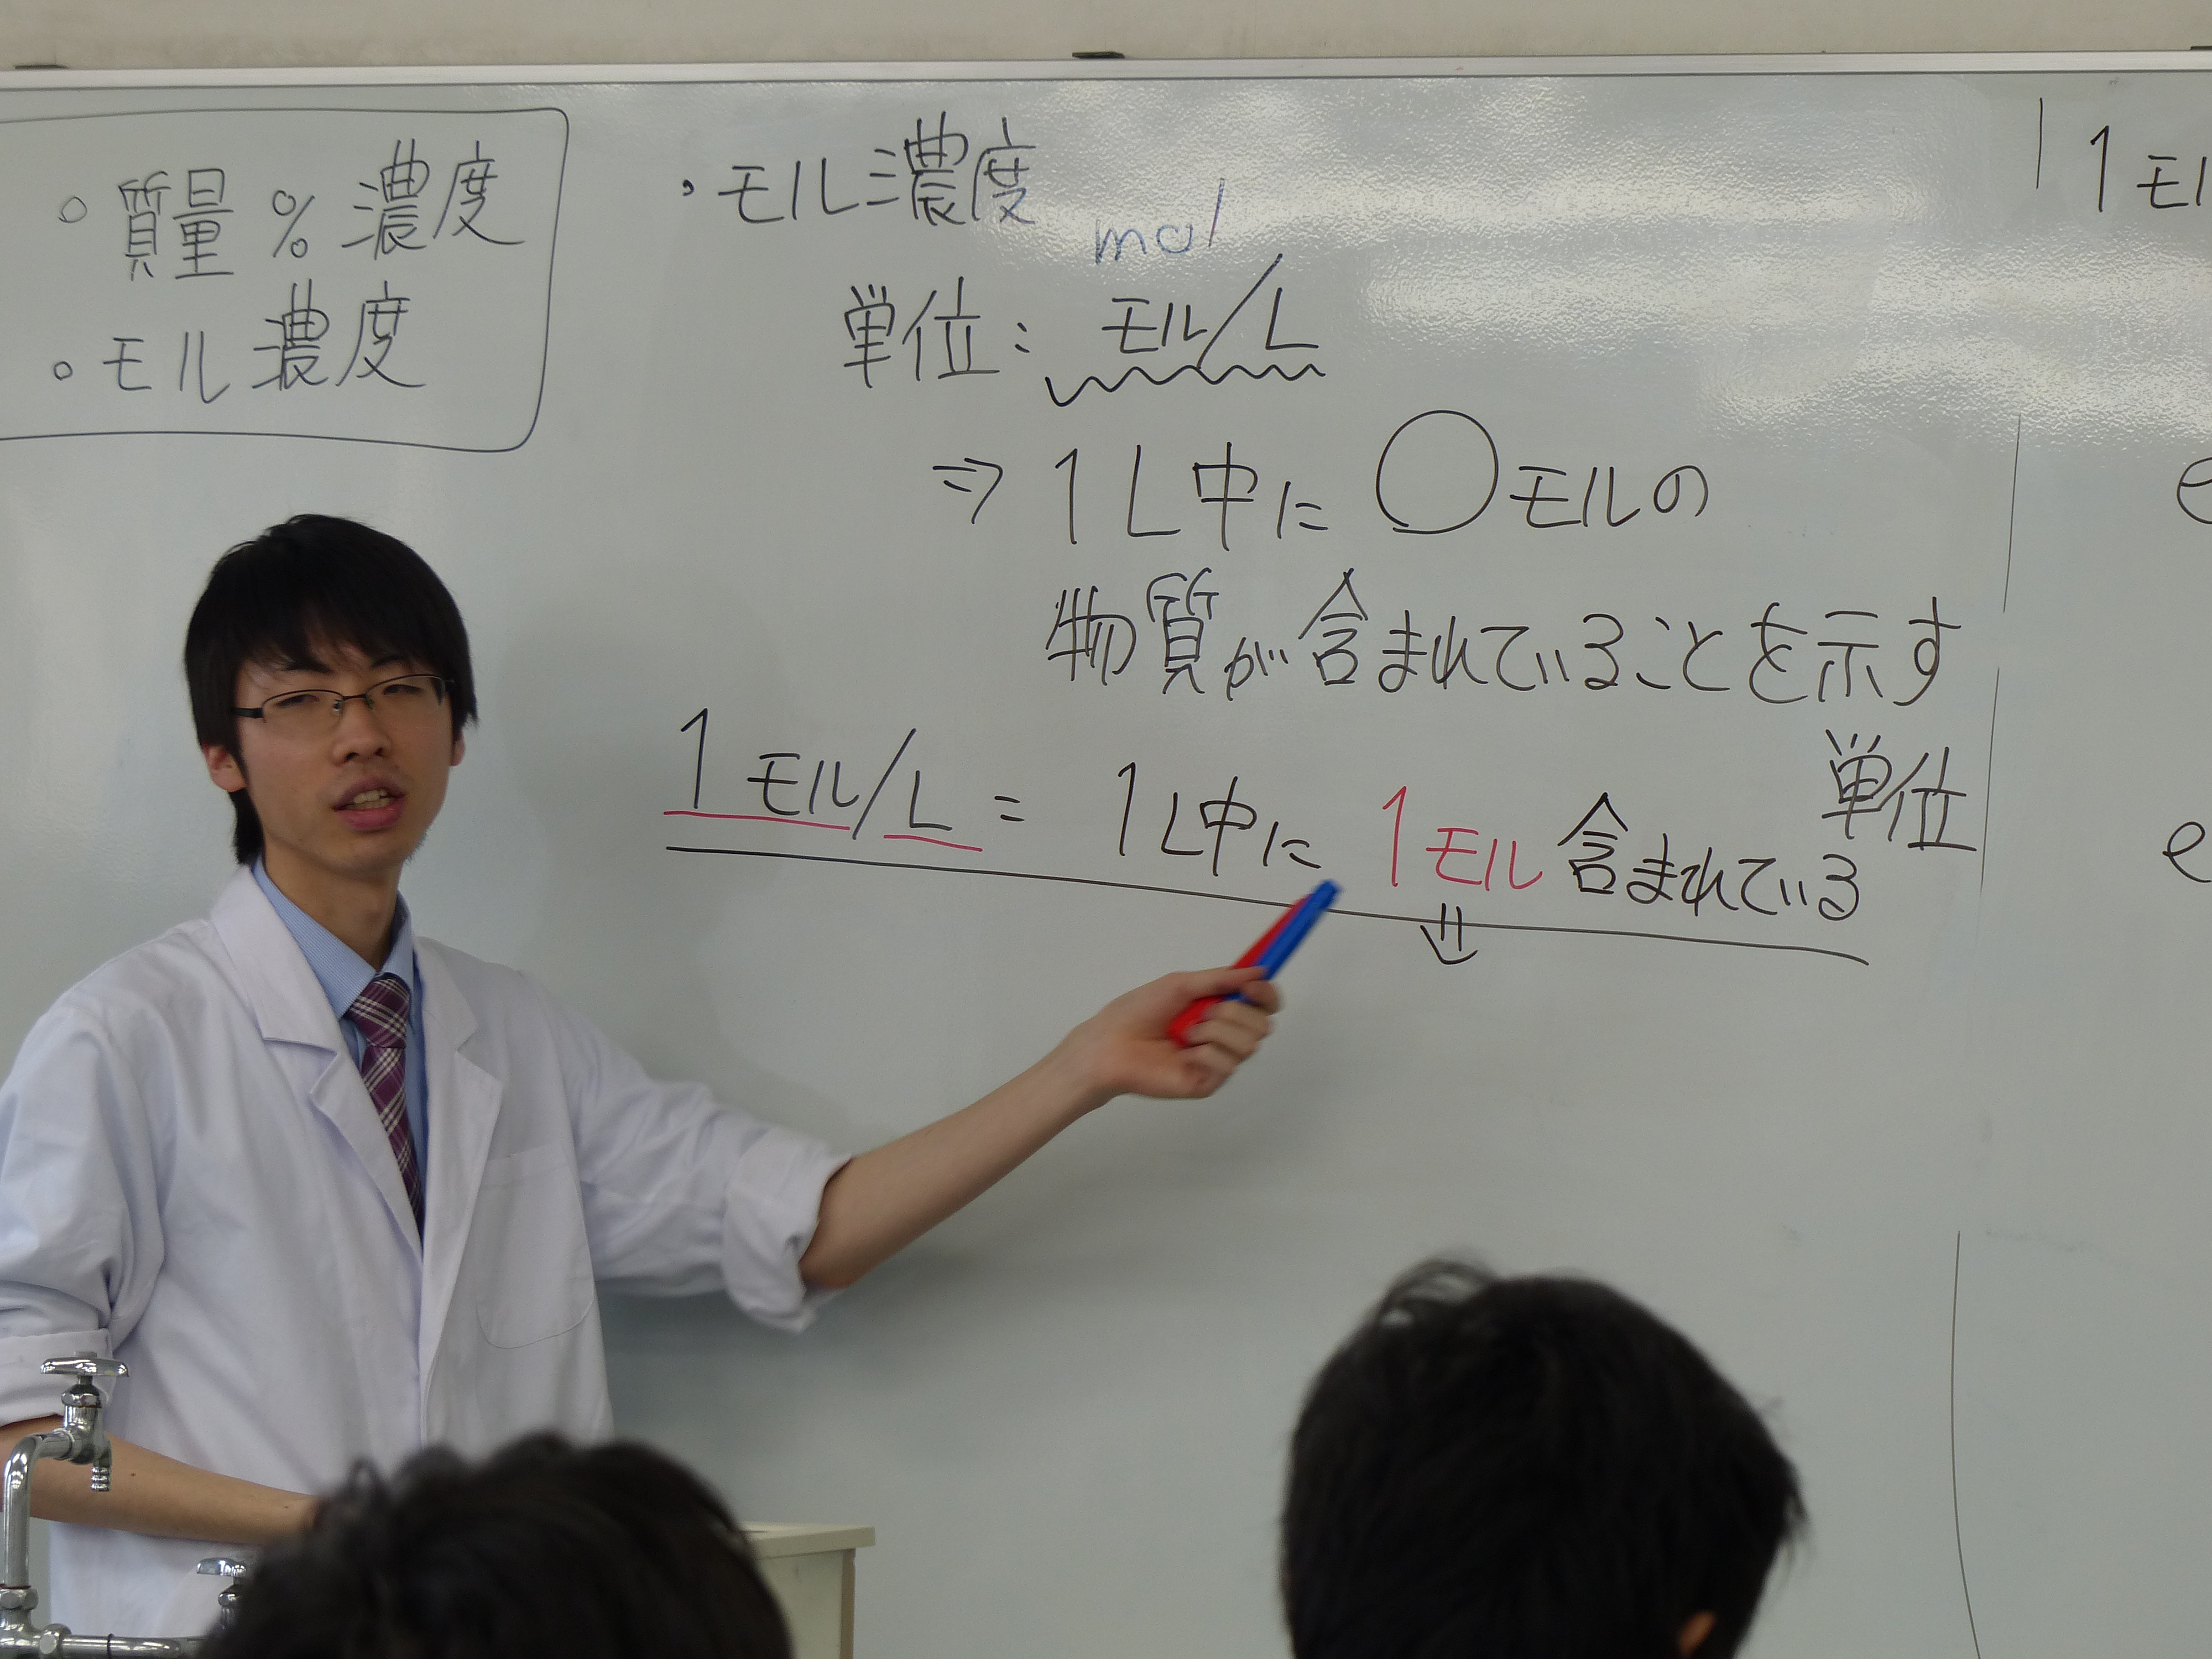 ○ 質量 % 濃度
○ モル濃度
・モル濃度
mol
単位: モル/L
⇒ 1L中に ○モルの
物質が含まれていることを示す
単位
1モル/L = 1L中に 1モル含まれている
⇓
1モル
e
e